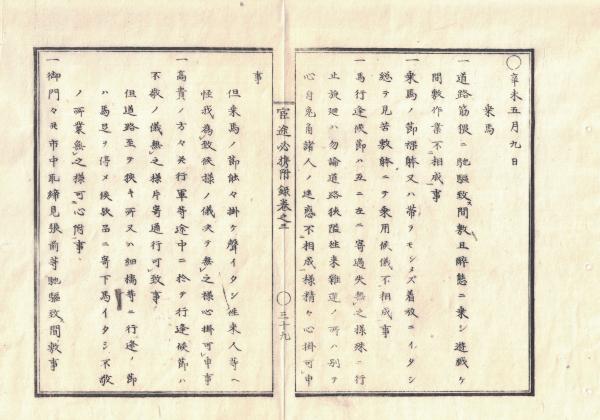 〇辛未五月九日
乗馬
一道路筋猥ニ馳驅致間敷且醉態ニ乗シ遊戯ケ
間敷作業不相成事
一乗馬ノ節裸躰又ハ帯ヲモシメズ着放ニイタシ
総テ見苦敷躰ニテ乗用候儀不相成事
一馬行逢候節ハ互ニ左ニ寄過失無之様殊ニ行
止旋廻ハ勿論道路狭隘往来雑遝ノ所ハ別テ
心自免角諸人ノ迷惑不相成様精々心掛可申
事
官途必携附録巻之三
〇三十九
但乗馬ノ節能々掛ケ聲イタシ往来人等ヘ
怪我為致候様ノ儀决テ無之様心掛可申事
一高貴ノ方々其行軍等途中ニ於テ行逢候節ハ
不敬ノ儀無之様片寄通行可致事
但道路至テ狭キ所又ハ細橋等ニ行逢ノ節
ハ馬足ヲ得メ候歟品ニ寄下馬イタシ不敬
ノ所業無之様可心附事
一御門々其市中取締見張前等馳驅致間敷事